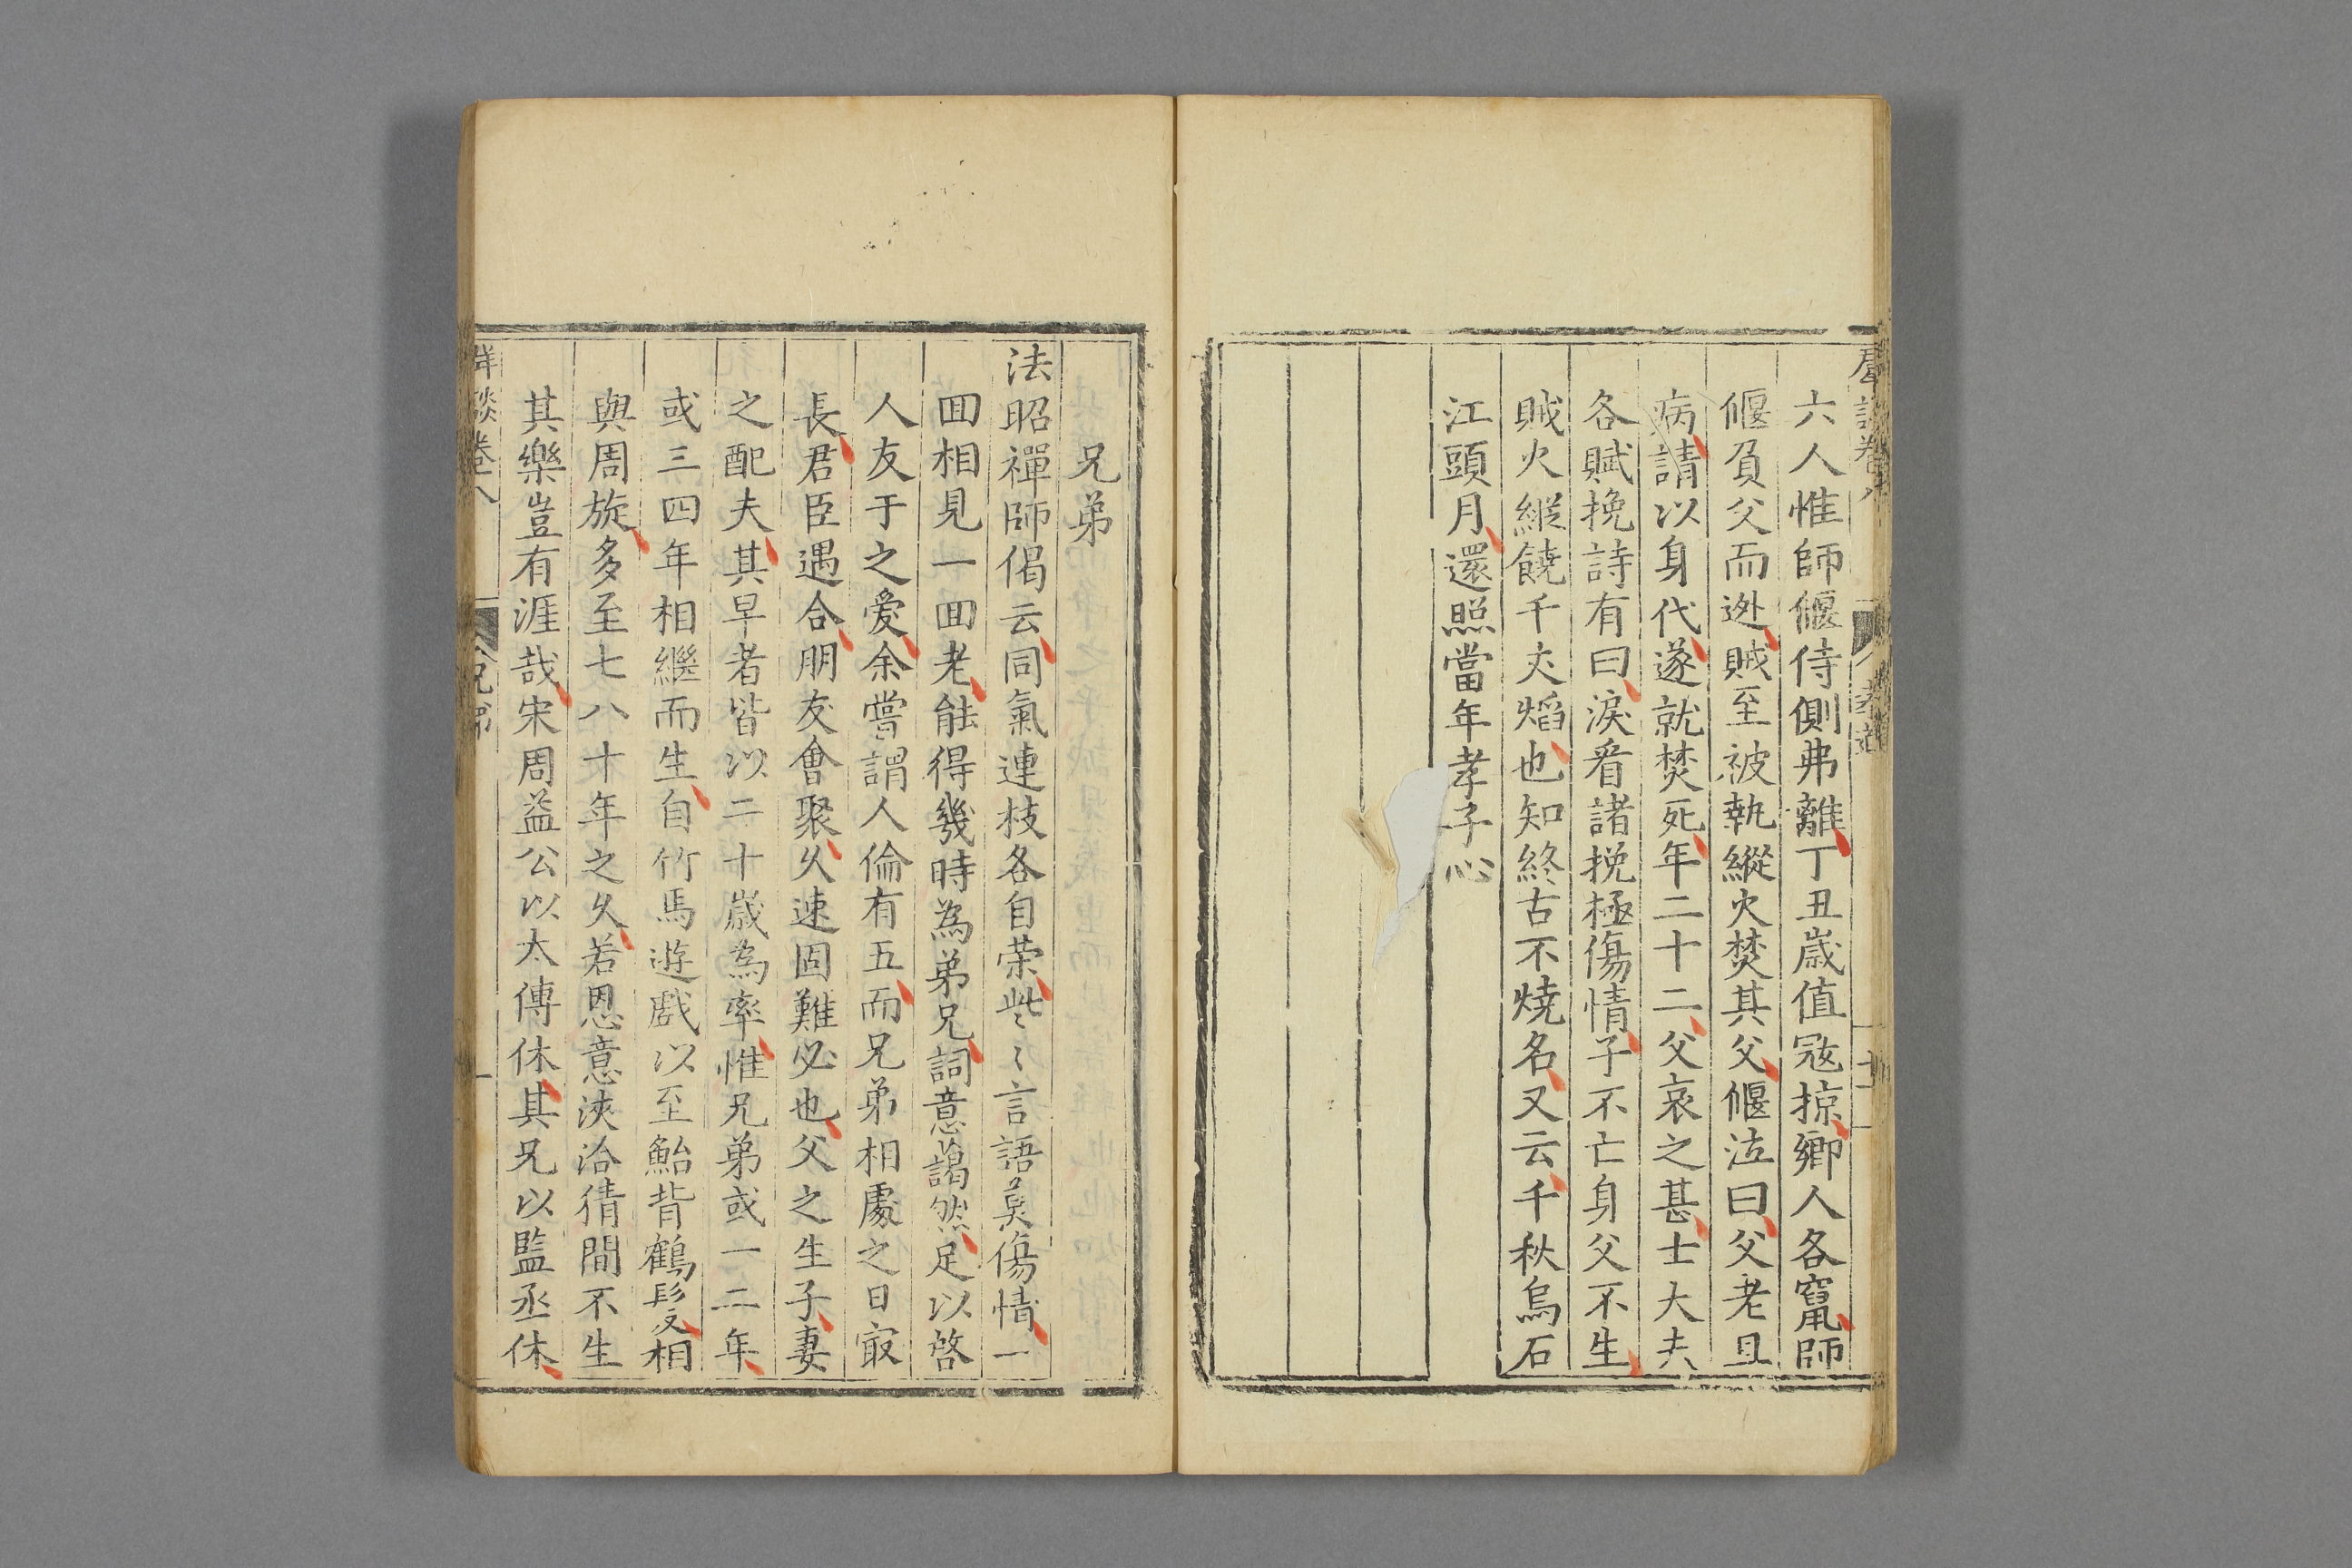 六人惟師偃侍側弗離丁丑歲值寇掠鄉人各竄師
偃負父而逊賊至被執縱火焚其父偃泣曰父老且
病請以身代遂就焚死年二十二父哀之甚士大夫
各賦挽詩有曰淚看諸挽極傷情子不亡身父不生
賊火縱饒千丈焰也知終古不燒名又云千秋烏石
江頭月還照當年孝子心
兄弟
法昭禪師偈云同氣連枝各自荣些〻言語莫傷情一
囬相見一囬老能得幾時為弟兄詞意藹然足以啓
人友于之愛余嘗謂人倫有五而兄弟相處之日㝡
長君臣遇合朋友會聚久速固難必也父之生子妻
之配夫其早者皆以二十歲為率惟兄弟或一二年
或三四年相繼而生自竹馬遊戲以至鮐背鶴髮相
與周旋多至七八十年之久若恩意浹洽猜間不生
其樂豈有涯哉宋周益公以太傅休其兄以監丞休
卷八